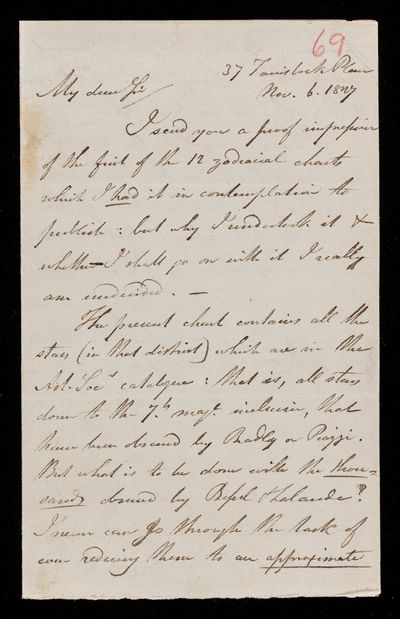 69
37 Tavistock Place
Nov. 6. 1827
My dear Sir/
I send you a proof impression
of the first of the 12 zodiacal charts
which I had it in contemplation to
publish : but why I undertook it &
whether I shall go on with it I really
am undecided. —
The present chart contains all the
stars (in that district) which are in the
Ast. Soc's catalogue : that is, all stars
down to the 7.th mag.e inclusive, that
have been observed by Bradley or Piazzi.
But what is to be done with the thou=
sands observed by Bessel & Lalande?
I never can go through the task of
even reducing them to an approximate